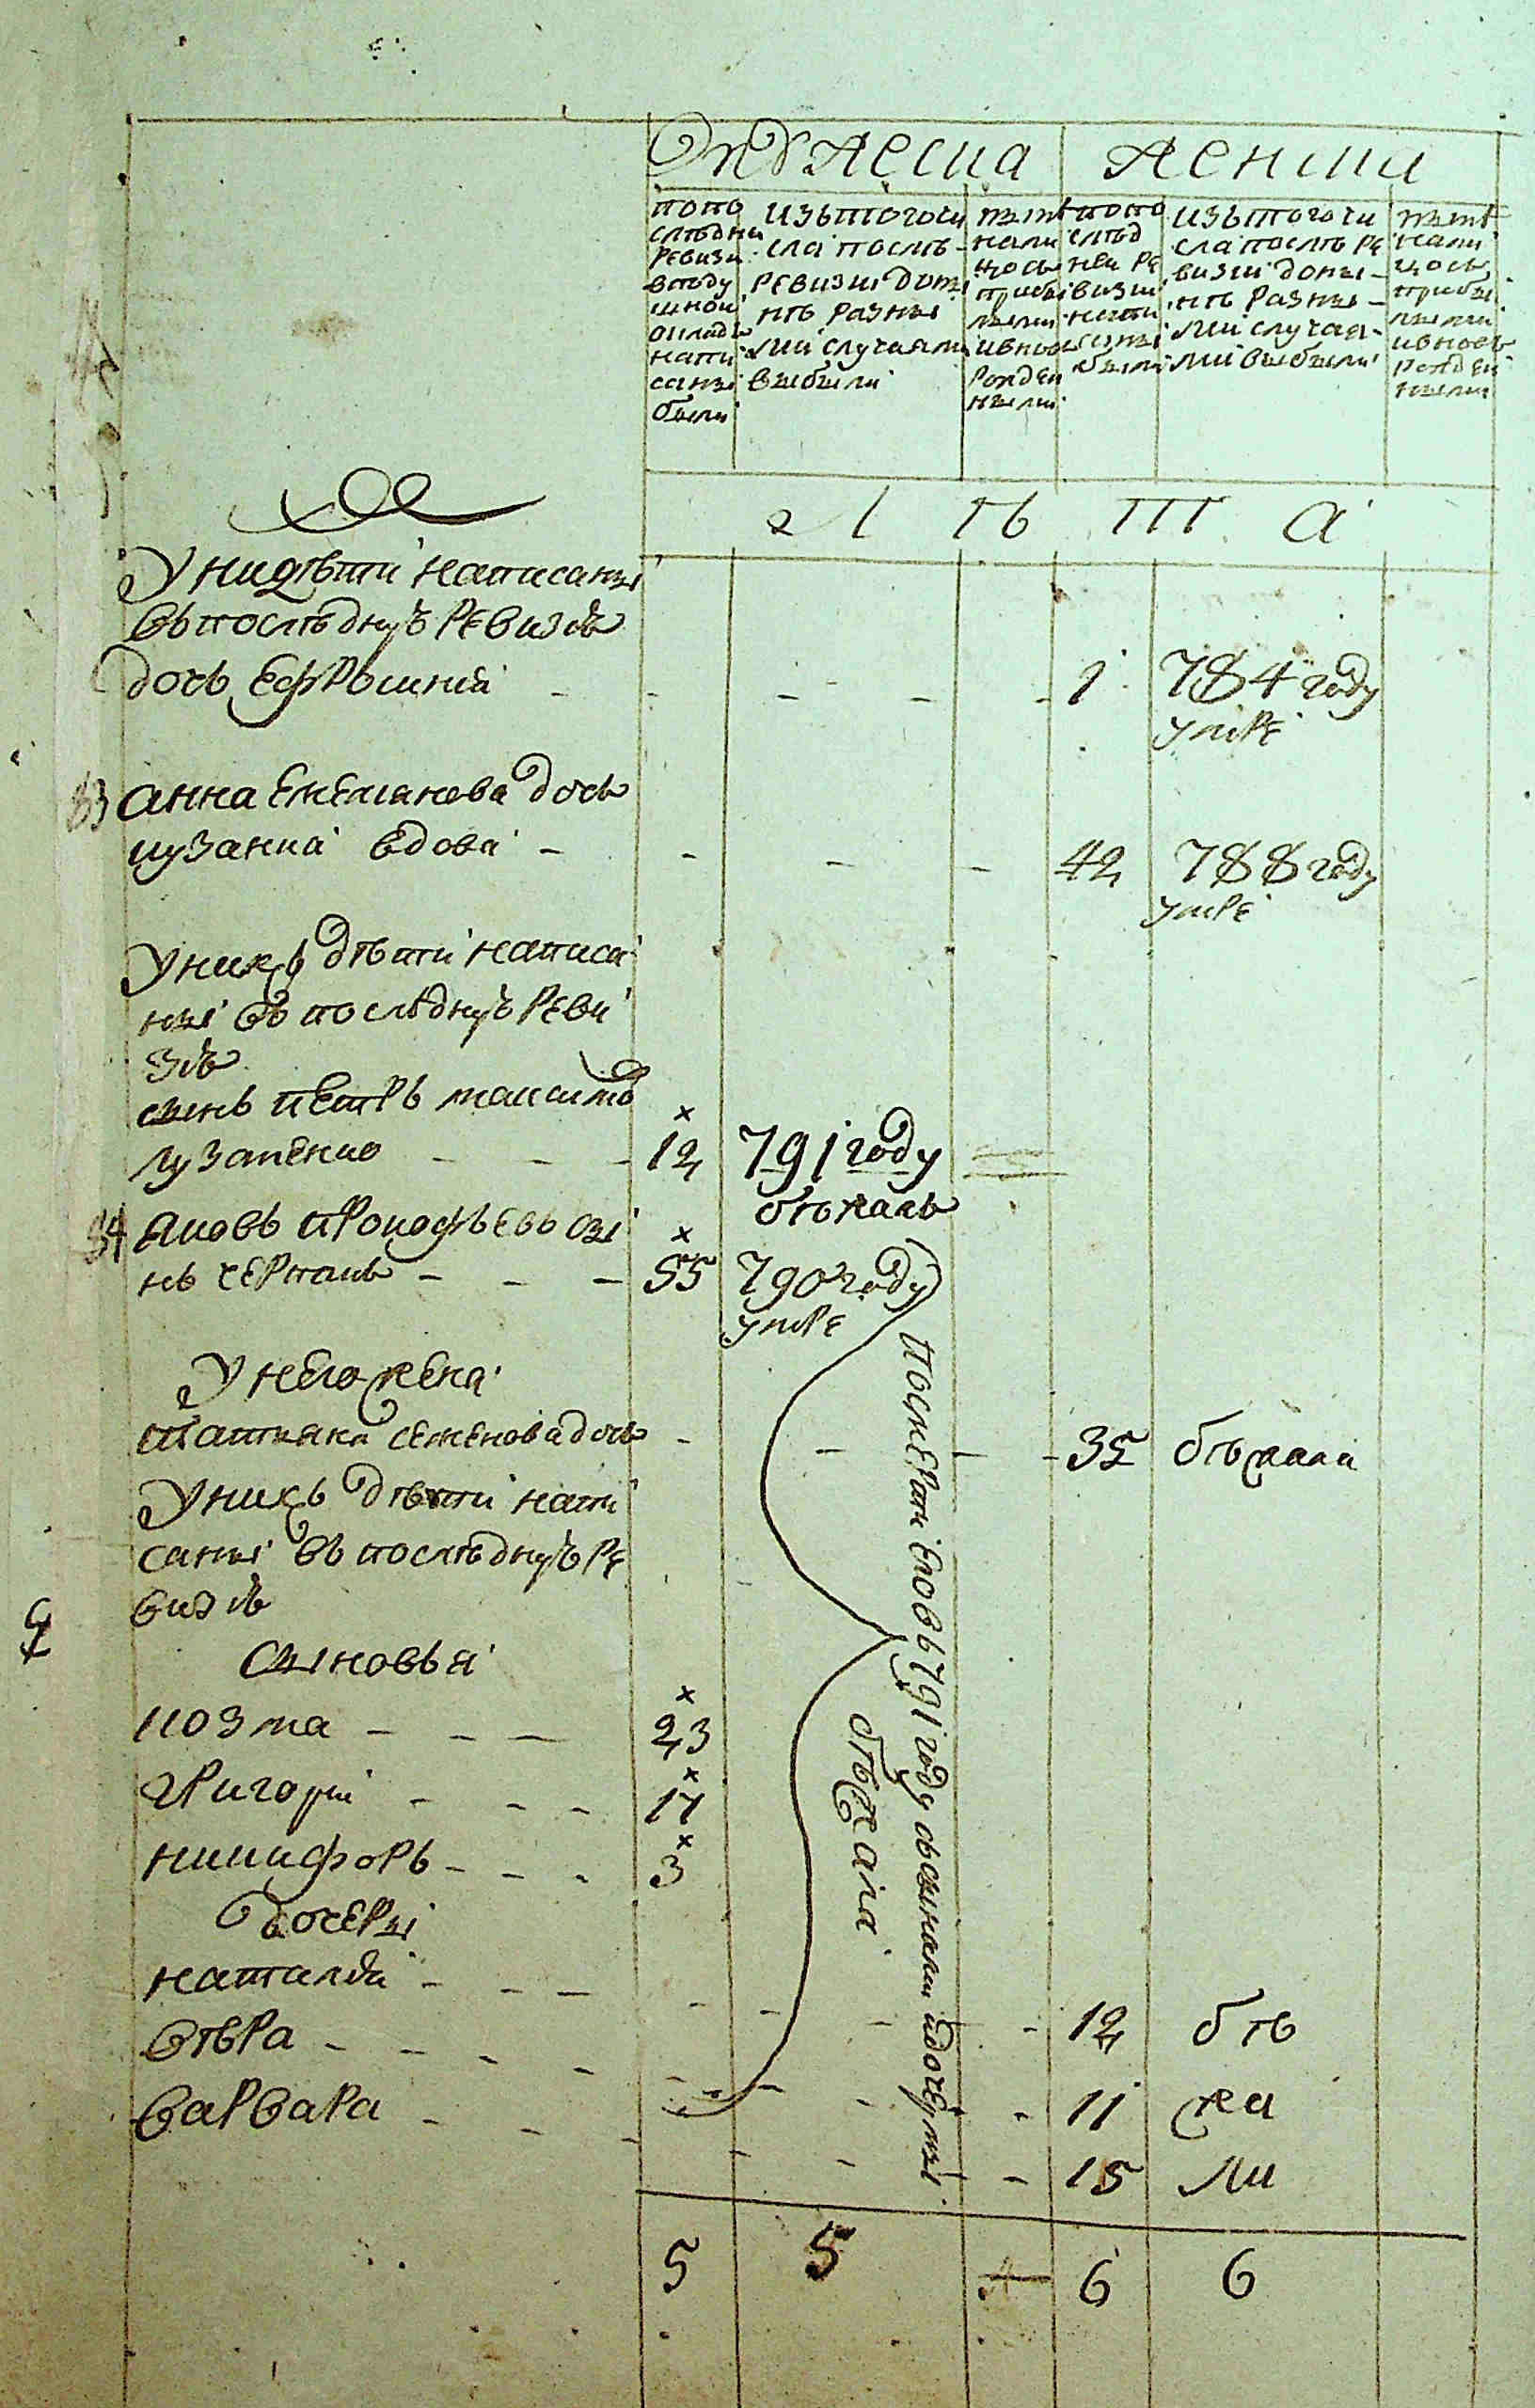 Мужеска Женска
попо
слѣдни
ревизи
вподу
шной
окладъ
напи
саны
были
изътогочи
сла послѣ
ревизиї доны
нѣ разны
ми случаями
выбыли
нали
цось
прибы
лыми
ивновь
рожден
ными
попо
слѣд
ней ре
визиї
напи
саны
были
изътогочи
сла послѣ ре
визиї доны
нѣ разны
ми случая
ми выбыли
нали
цось
прибы
лыми
ивновь
рожден
ными
лѣта
У нихъ дѣти написаны
въ послѣднуъ ревизїъ
дочь Ефросиния 1 784 году
умре
83 анна Емельянова дочь
кузакиа вдова 42 788 году
умре
У нихъ дѣти написа
ны въ послѣднуъ реви
зїъ
сынъ Петръ максимо
лузаненко 12 791 году
бѣжалъ
84 яковъ Прокофьевъ сы
нъ чермакъ 55 790 году
умре
У него жена
татьяна семенова дочь 35 бѣжала
У нихъ дѣти напи
саны въ послѣднуъ ре
визїъ
Сыновья
козма 23
григорїи 17
никифоръ 3
дочери
наталья 12 бѣ
вѣра 11 жа
варвара 15 ли
посмерти Его въ 791 году съ сынами идочерми
бѣжала
5 5 6 6